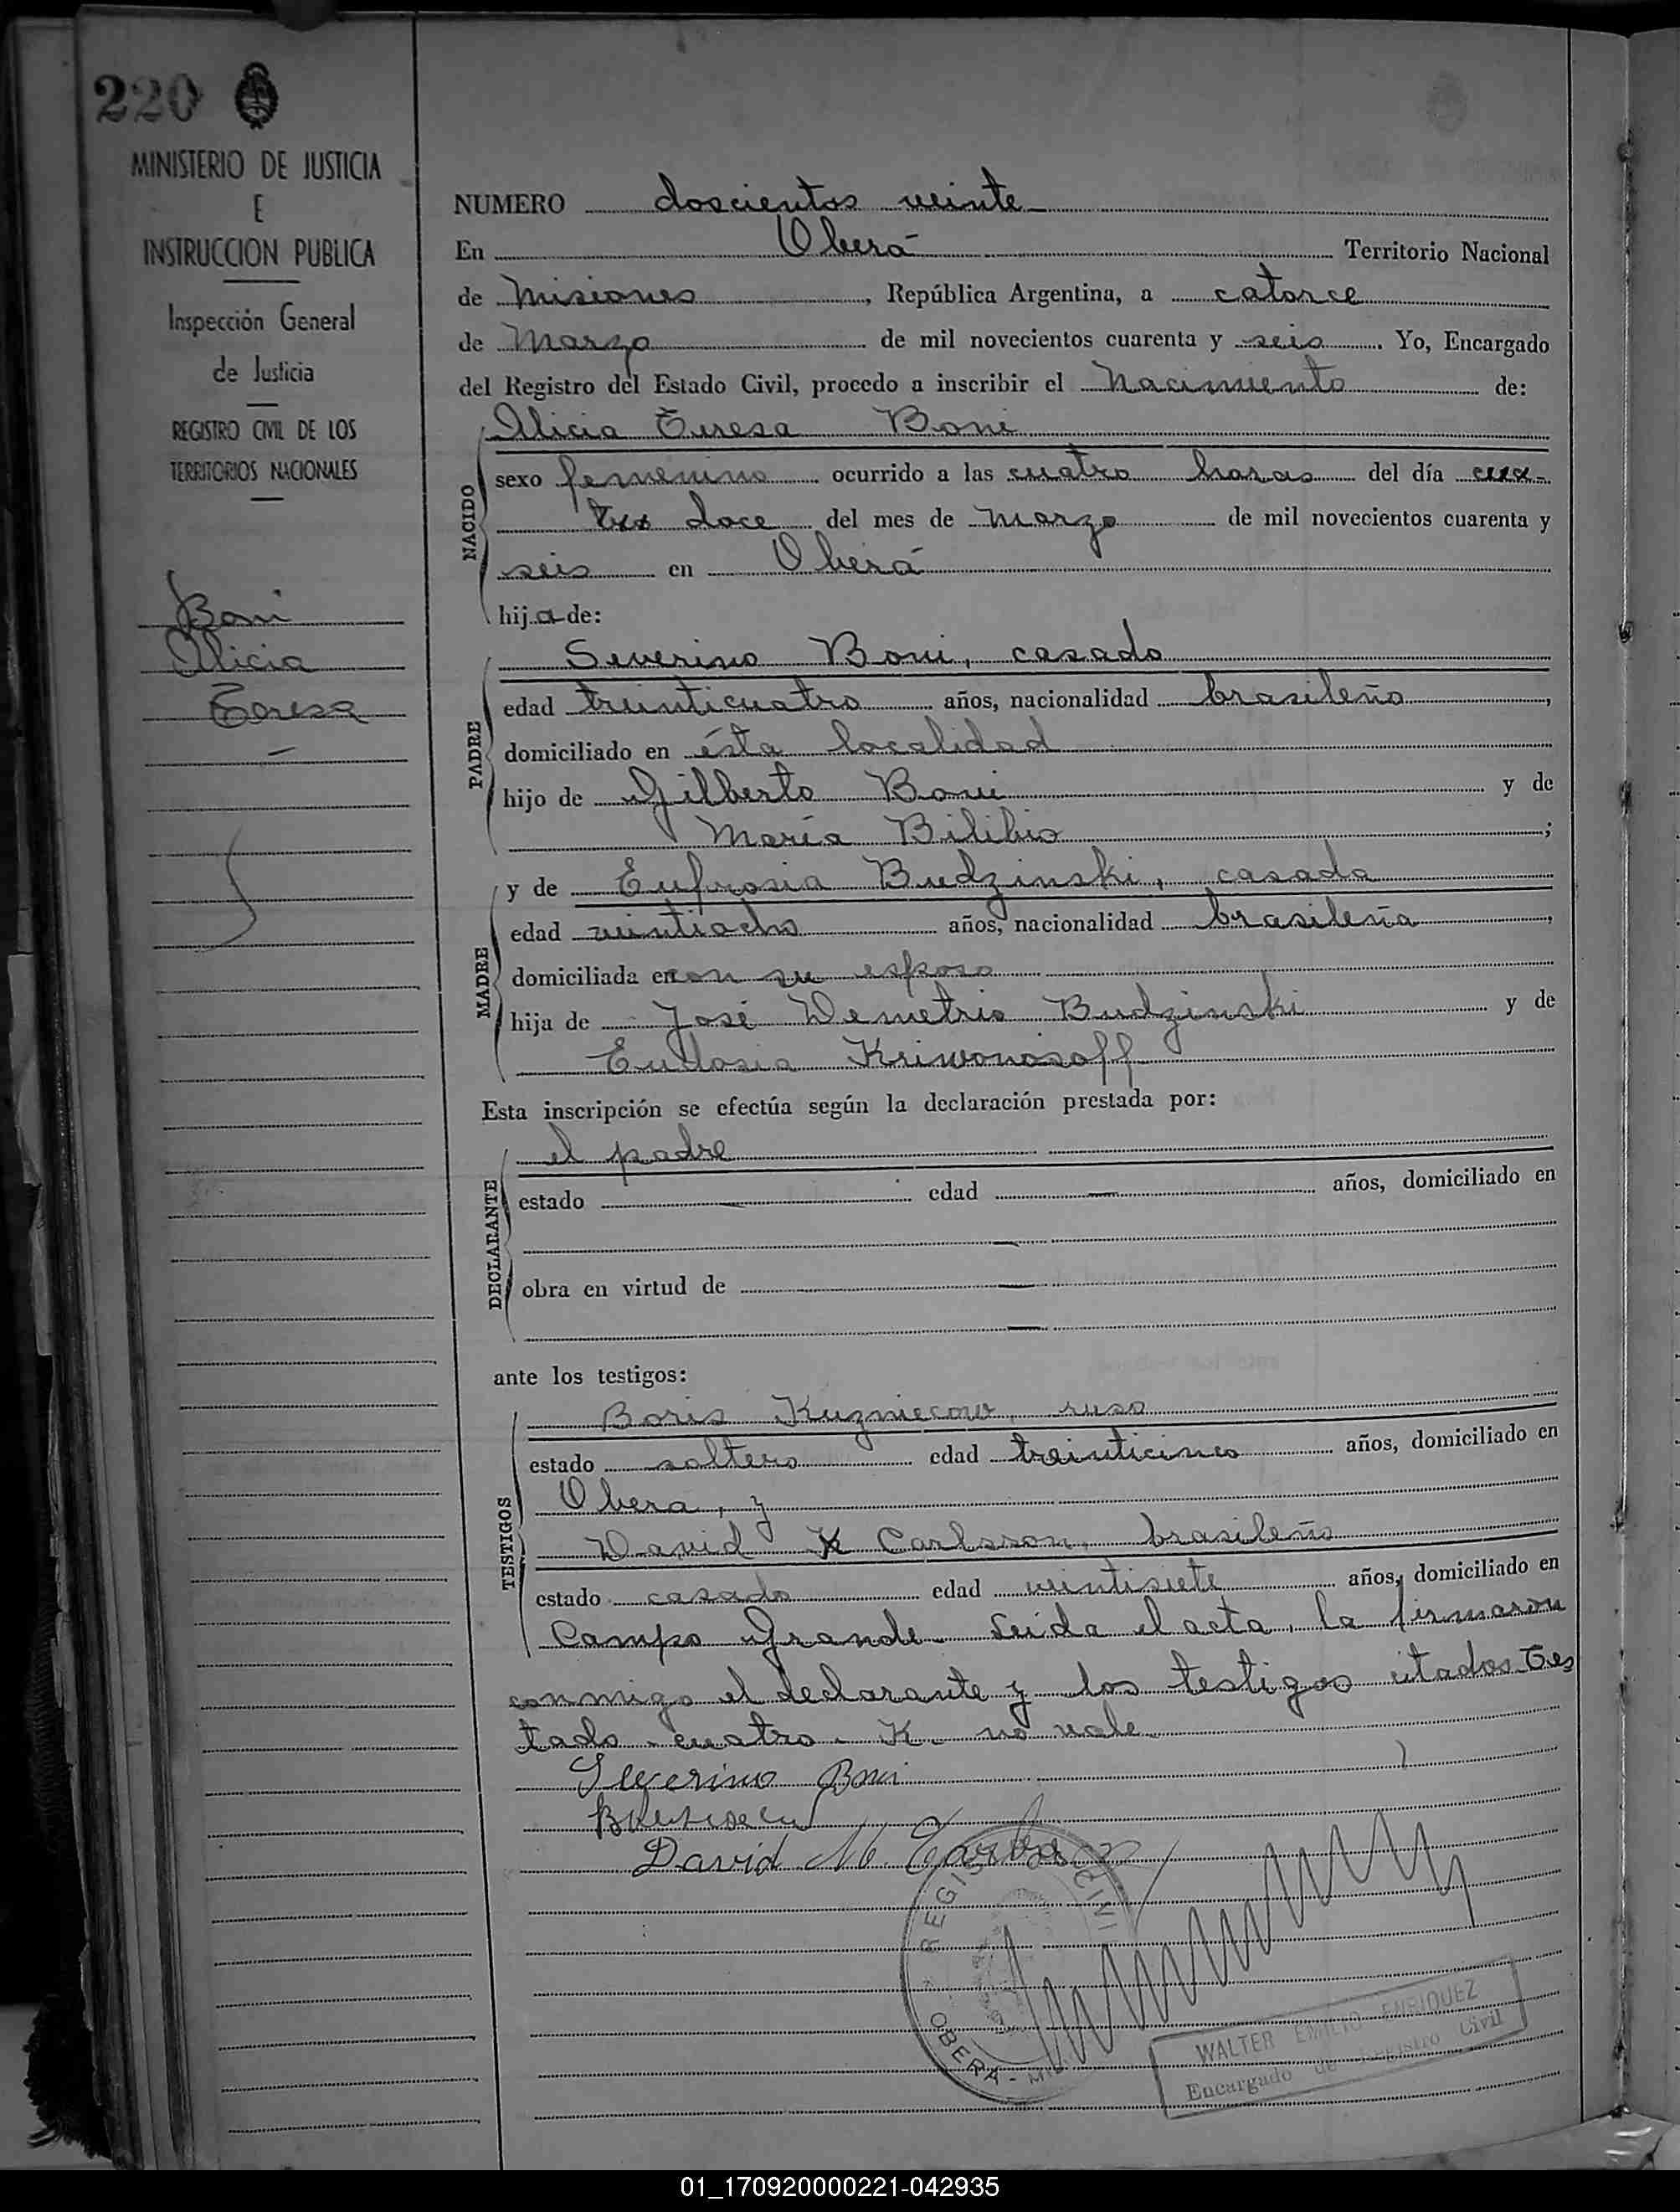 220
MINISTERIO DE JUSTICIA
E
INSTRUCCION PUBLICA
Inspección General
de Justicia
REGISTRO CIVIL DE LOS
TERRITORIOS NACIONALES
Boni
Alicia
Teresa
NUMERO doscientos veinte
En Oberá Territorio Nacional
de Misiones, República Argentina, a catorce
de Marzo de mil novecientos cuarenta y seis. Yo, Encargado
del Registro del Estado Civil, procedo a inscribir el Nacimiento de:
NACIDO
Alicia Teresa Boni
sexo femenino ocurrido a las cuatro horas del día cua-
tro doce del mes de marzo de mil novecientos cuarenta y
seis en Oberá
hija de:
PADRE
Severino Boni, casado
edad treinticuatro años, nacionalidad brasileño,
domiciliado en ésta localidad
hijo de Gilberto Boni y de
María Bilibio;
MADRE
y de Eufrosia Budzinski, casada
edad veintiocho años, nacionalidad brasileña,
domiciliada en con su esposo
hija de José Demetrio Budzinski y de
Eudosia Kriwonosoff
Esta inscripción se efectúa según la declaración prestada por:
DECLARANTE
el padre
estado — edad — años, domiciliado en
—
obra en virtud de —
—
ante los testigos:
TESTIGOS
Boris Kuzniecow, ruso
estado soltero edad treinticinco años, domiciliado en
Obera, y
David K Carlsson, brasileño
estado casado edad veintisiete años, domiciliado en
Campo Grande. Leida el acta, la firmaron
conmigo el declarante y los testigos citados. Tes
tado - cuatro - K - no vale
Severino Boni
David M Carlsson
REGISTRO CIVIL
OBERA - MIS
WALTER EMILIO ENRIQUEZ
Encargado de Registro Civil
01_170920000221-042935